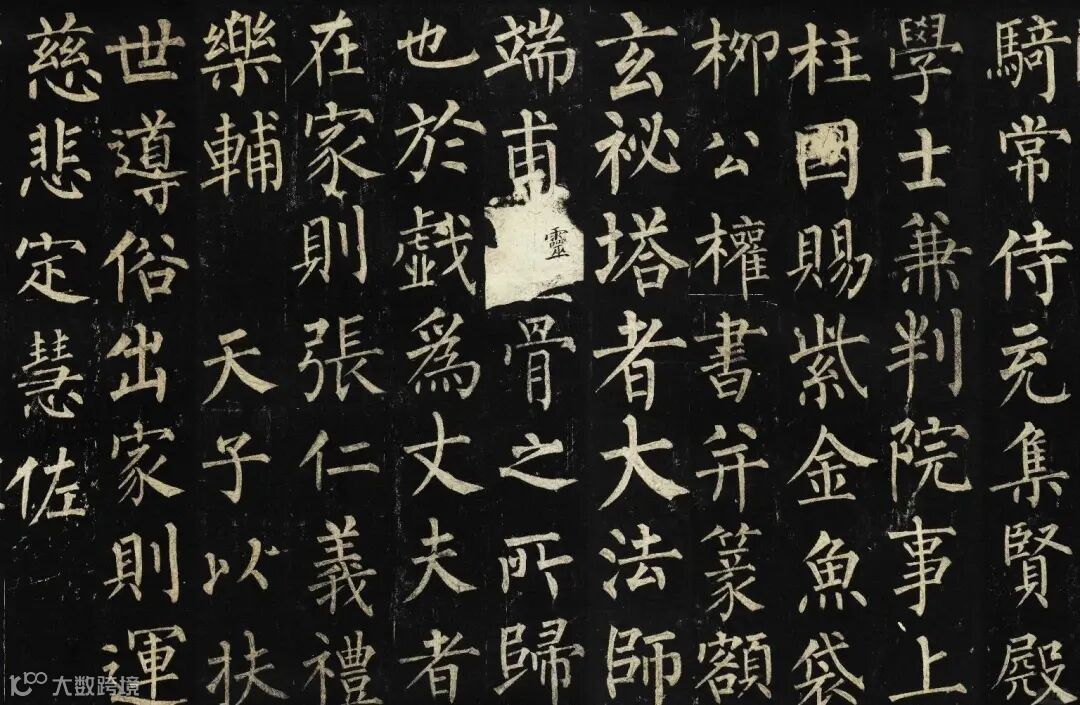 騎常侍充集賢殿
學士兼判院事上
柱國賜紫金魚袋
柳公權書并篆額
玄祕塔者大法師
端甫靈骨之所歸
也於戲爲丈夫者
在家則張仁義禮
樂輔 天子以扶
世導俗出家則運
慈悲定慧佐
大数跨境